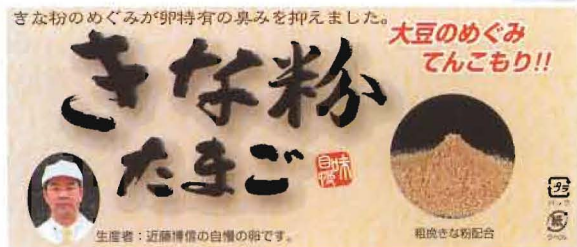 きな粉のめぐみが卵特有の臭みを抑えました。
大豆のめぐみ
てんこもり!!
きな粉
たまご
自慢味
生産者：近藤博信の自慢の卵です。
粗挽きな粉配合
プラ
パック
紙
ラベル